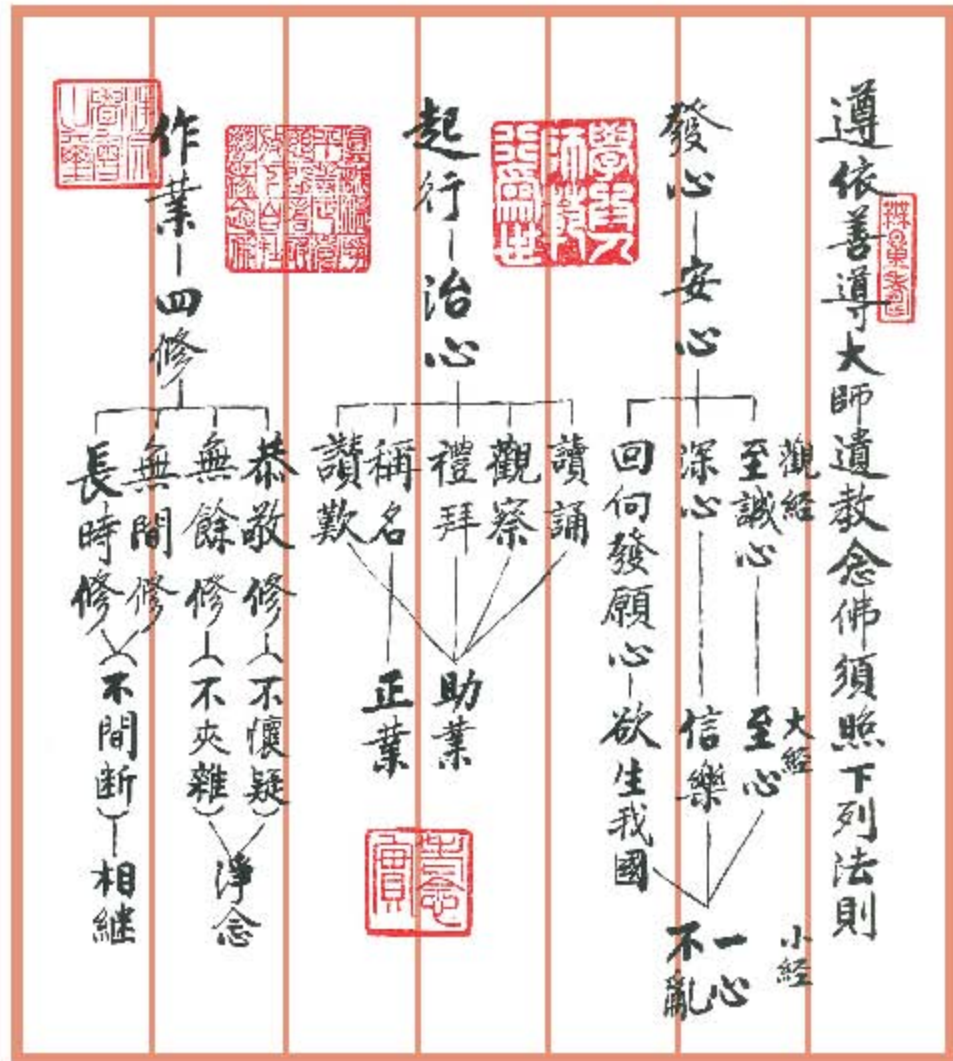 遵依善導大師遺教念佛須照下列法則
發心—安心
觀經
至誠心
深心
回向發願心
大經
至心
信樂
欲生我國
小經
一心
不亂
起行—治心
讀誦
觀察
禮拜
稱名
讚歎
助業
正業
作業—四修
恭敬修（不懷疑）
無餘修（不夾雜）
無間修
長時修
（不間断）
淨念
相継
學為人
師範
行為世